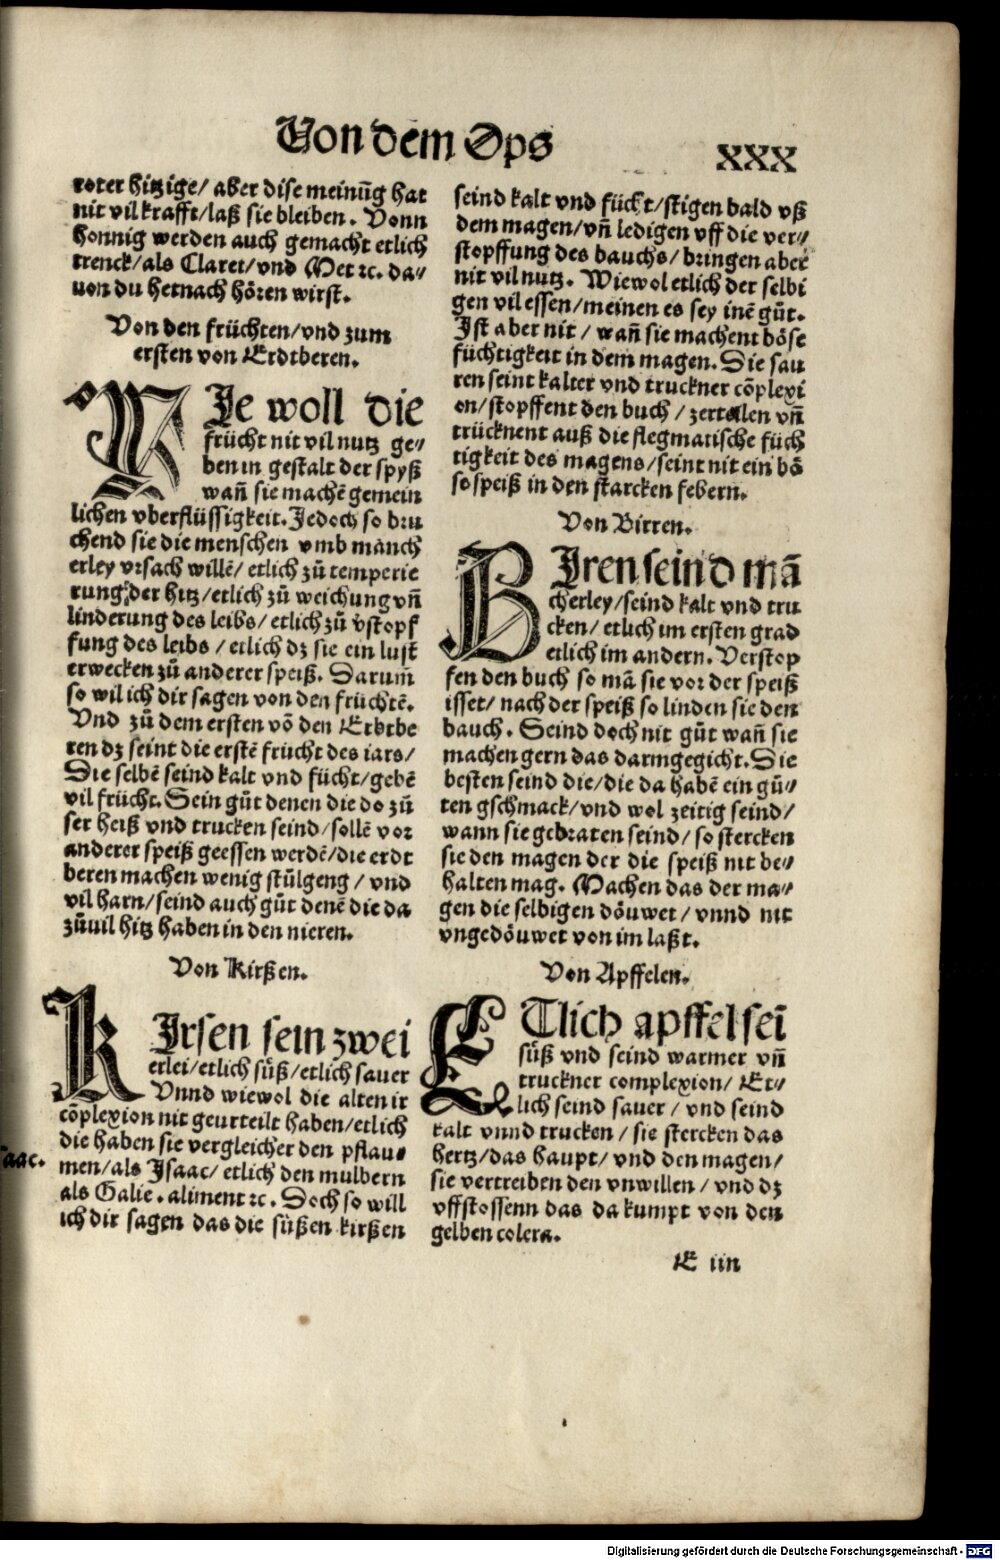 Von dem Ops
XXX
roter hitzige/ aber dise meinũg hat
nit vil krafft/laß sie bleiben. Vonn
honnig werden auch gemacht etlich
trenck/als Claret/vnd Met ꝛc. da⸗
uon du hernach hören wirst.
Von den früchten/vnd zum
ersten von Erdtberen.
WJe woll die
frücht nit vil nutz ge⸗
ben in gestalt der spyß
wañ sie machẽ gemein
lichen vberflüssigkeit. Jedoch so bru
chend sie die menschen vmb manch
erley vrsach willẽ/ etlich zů temperie
rung der hitz/etlich zů weichung vñ
linderung des leibs/ etlich zů vstopf
fung des leibs / etlich dz sie ein lust
erwecken zů anderer speiß. Darum̃
so wil ich dir sagen von den früchtẽ.
Vnd zů dem ersten võ den Erdtbe
ren dz seint die erstẽ frucht des iars/
Die selbẽ seind kalt vnd fücht/gebẽ
vil frücht. Sein gůt denen die do zů
ser heiß vnd trucken seind/sollẽ vor
anderer speiß geessen werdẽ/die erdt
beren machen wenig stůlgeng / vnd
vil harn/seind auch gůt denẽ die da
zůuil hitz haben in den nieren.
Von Kirßen.
KJrsen sein zwei
erlei/etlich süß/etlich sauer
Vnnd wiewol die alten ir
cõplexion nit geurteilt haben/etlich
die haben sie vergleicher den pflau⸗
men/als Jsaac/ etlich den mulbern
als Galie. aliment ꝛc. Doch so will
ich dir sagen das die süßen kirßen
aac.
seind kalt vnd fücht/stigen bald vß
dem magen/vñ ledigen vff die ver⸗
stopffung des bauchs/ bringen aber
nit vil nutz. Wiewol etlich der selbi
gen vil essen/meinen es sey inẽ gůt.
Jst aber nit / wañ sie machent böse
füchtigkeit in dem magen. Die sau
ren seint kalter vnd truckner cõplexi
on/stopffent den buch / zertalen vñ
trücknent auß die flegmatische füch
tigkeit des magens/seint nit ein bö
so speiß in den starcken febern.
Von Birren.
BJren seind mã
cherley/seind kalt vnd tru
cken/ etlich im ersten grad
etlich im andern. Verstop
fen den buch so mã sie vor der speiß
isset/ nach der speiß so linden sie den
bauch. Seind doch nit gůt wañ sie
machen gern das darmgegicht. Die
besten seind die/die da habẽ ein gů⸗
ten gschmack/vnd wol zeitig seind/
wann sie gebraten seind/ so stercken
sie den magen der die speiß nit be⸗
halten mag. Machen das der ma⸗
gen die selbigen döuwet/ vnnd nit
vngedöuwet von im laßt.
Von Apffelen.
ETlich apffel seĩ
süß vnd seind warmer vñ
truckner complexion/ Et⸗
lich seind sauer / vnd seind
kalt vnnd trucken / sie stercken das
hertz/das haupt/ vnd den magen/
sie vertreiben den vnwillen / vnd dz
vffstossenn das da kumpt von den
gelben colera.
E iin
Digitalisierung gefördert durch die Deutsche Forschungsgemeinschaft - DFG